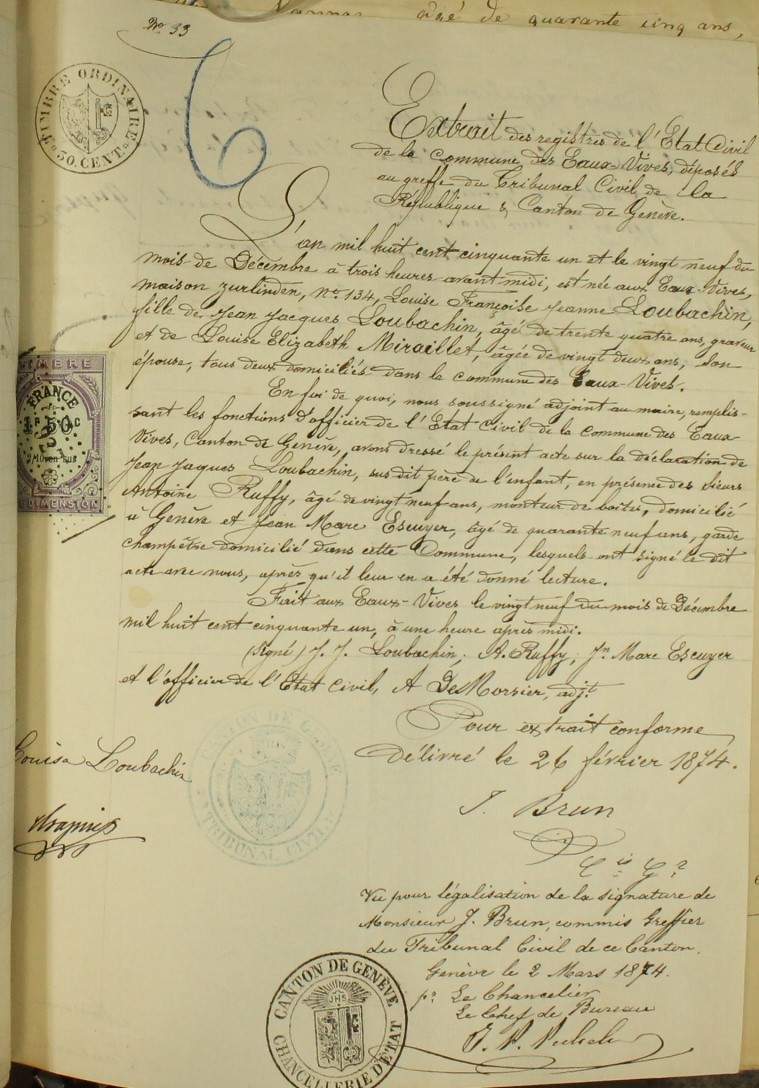 âgé de quarante cinq ans,
No. 33
6
TIMBRE ORDINAIRE
30. CENT.
Extrait des registres de l'État Civil
de la commune des Eaux-Vives, déposés
au greffe du Tribunal Civil de la
République & Canton de Genève.
L'an mil huit cent cinquante un et le vingt neuf du
mois de Décembre à trois heures avant midi, est née aux Eaux-Vives,
maison zurlinden, No. 134, Louise Françoise Jeanne Loubachin,
fille de Jean Jacques Loubachin, âgé de trente quatre ans, graveur
et de Louise Elizabeth Miraillet, âgée de vingt deux ans, son
épouse, tous deux domiciliés dans la commune des Eaux-Vives.
En foi de quoi, nous soussigné adjoint au maire, remplis-
sant les fonctions d'officier de l'État Civil de la Commune des Eaux
Vives, Canton de Genève, avons dressé le présent acte sur la déclaration de
Jean Jacques Loubachin, sus dit père de l'enfant, en présence des sieurs
Antoine Ruffy, âgé de vingt neuf ans, monteur de boîtes, domicilié
à Genève et Jean Marc Escuyer, âgé de quarante neuf ans, garde
champêtre domicilié dans cette Commune, lesquels ont signé le dit
acte avec nous, après qu'il leur en a été donné lecture.
Fait aux Eaux-Vives le vingt neuf du mois de Décembre
mil huit cent cinquante un, à une heure après midi.
(signé) J. J. Loubachin, A. Ruffy, Jn. Marc Escuyer
et l'officier de l'État Civil, A DeMorsier, adjt.
TIMBRE
FRANCE
1F 50C
DIMENSION
Pour extrait conforme
Délivré le 26 février 1874.
Louisa Loubachin
TRIBUNAL CIVIL
J. Brun
Cis Gr
Vu pour légalisation de la signature de
Monsieur J. Brun, commis Greffier
du Tribunal Civil de ce Canton.
Genève le 2 Mars 1874.
pr. Le Chancelier
Le Chef de Bureau
CANTON DE GENÈVE
JHS
CHANCELLERIE D'ÉTAT